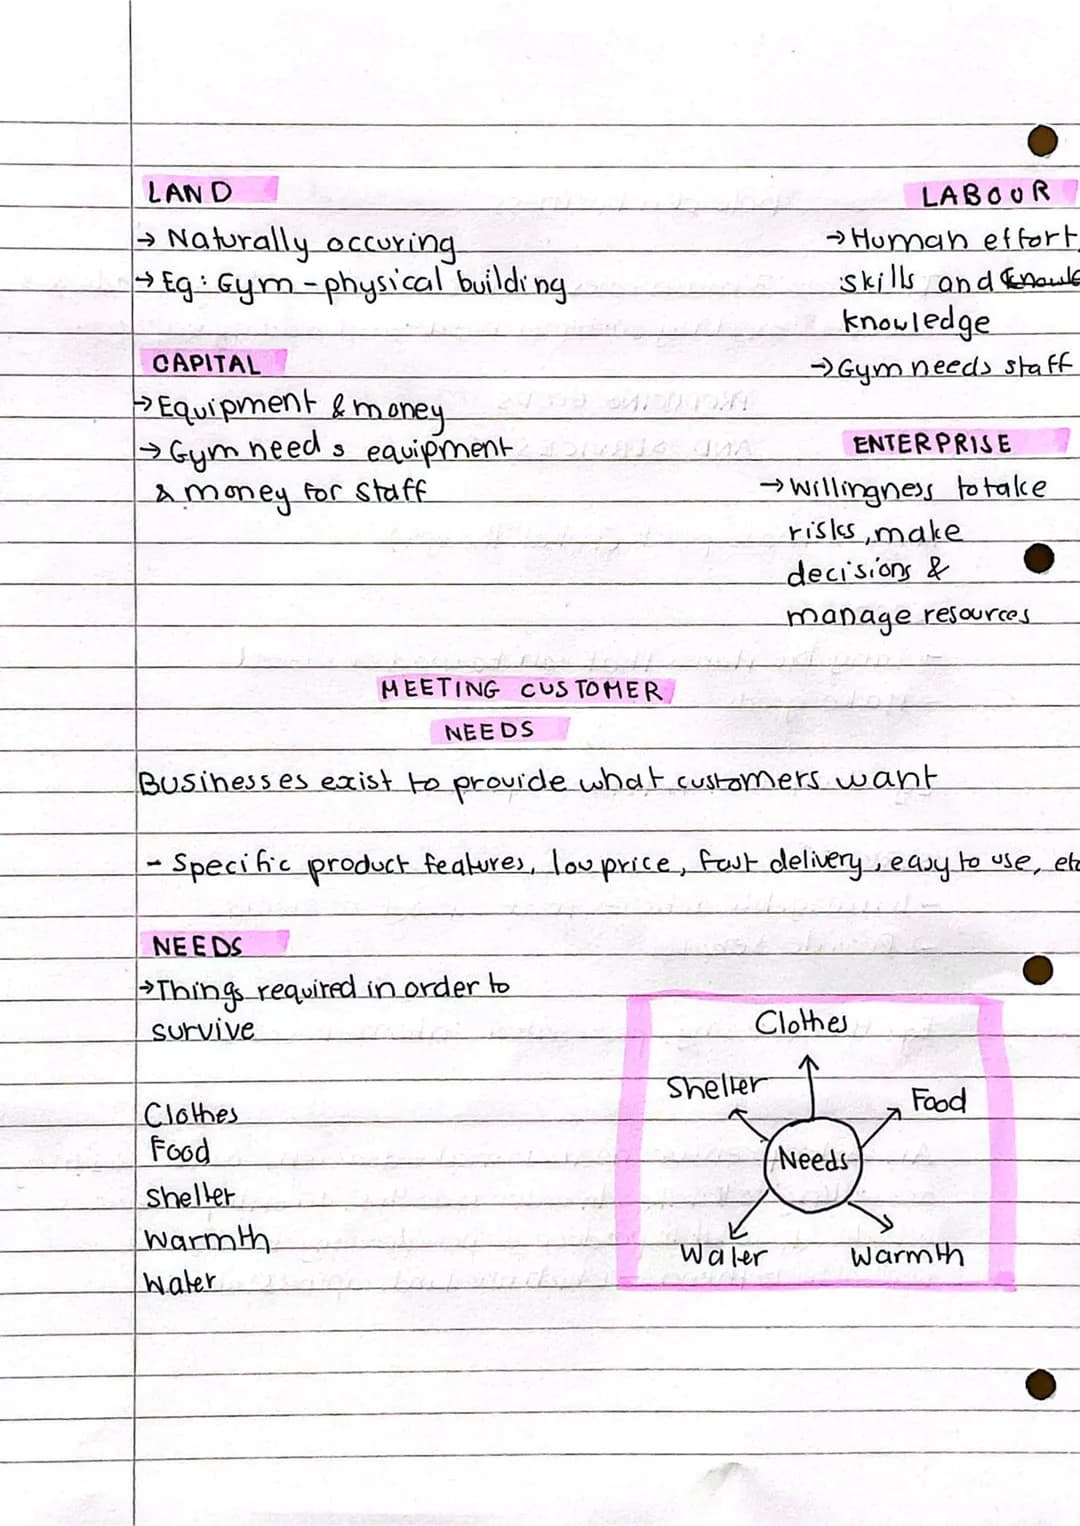 LAND
→ Naturally occuring
→ Eg: Gym - physical building
CAPITAL
→ Equipment & money
→ Gym needs equipment
& money for staff
LABOUR
→ Human effort,
skills and knowle
knowledge
→ Gym needs staff
ENTERPRISE
→ Willingness to take
risks, make
decisions &
manage resources
MEETING CUSTOMER
NEEDS
Businesses exist to provide what customers want
- Specific product features, low price, fast delivery, easy to use, etc
NEEDS
→ Things required in order to
survive
Clothes
Food
Shelter
Warmth
Water
Clothes
Shelter
Food
Needs
Water
Warmth